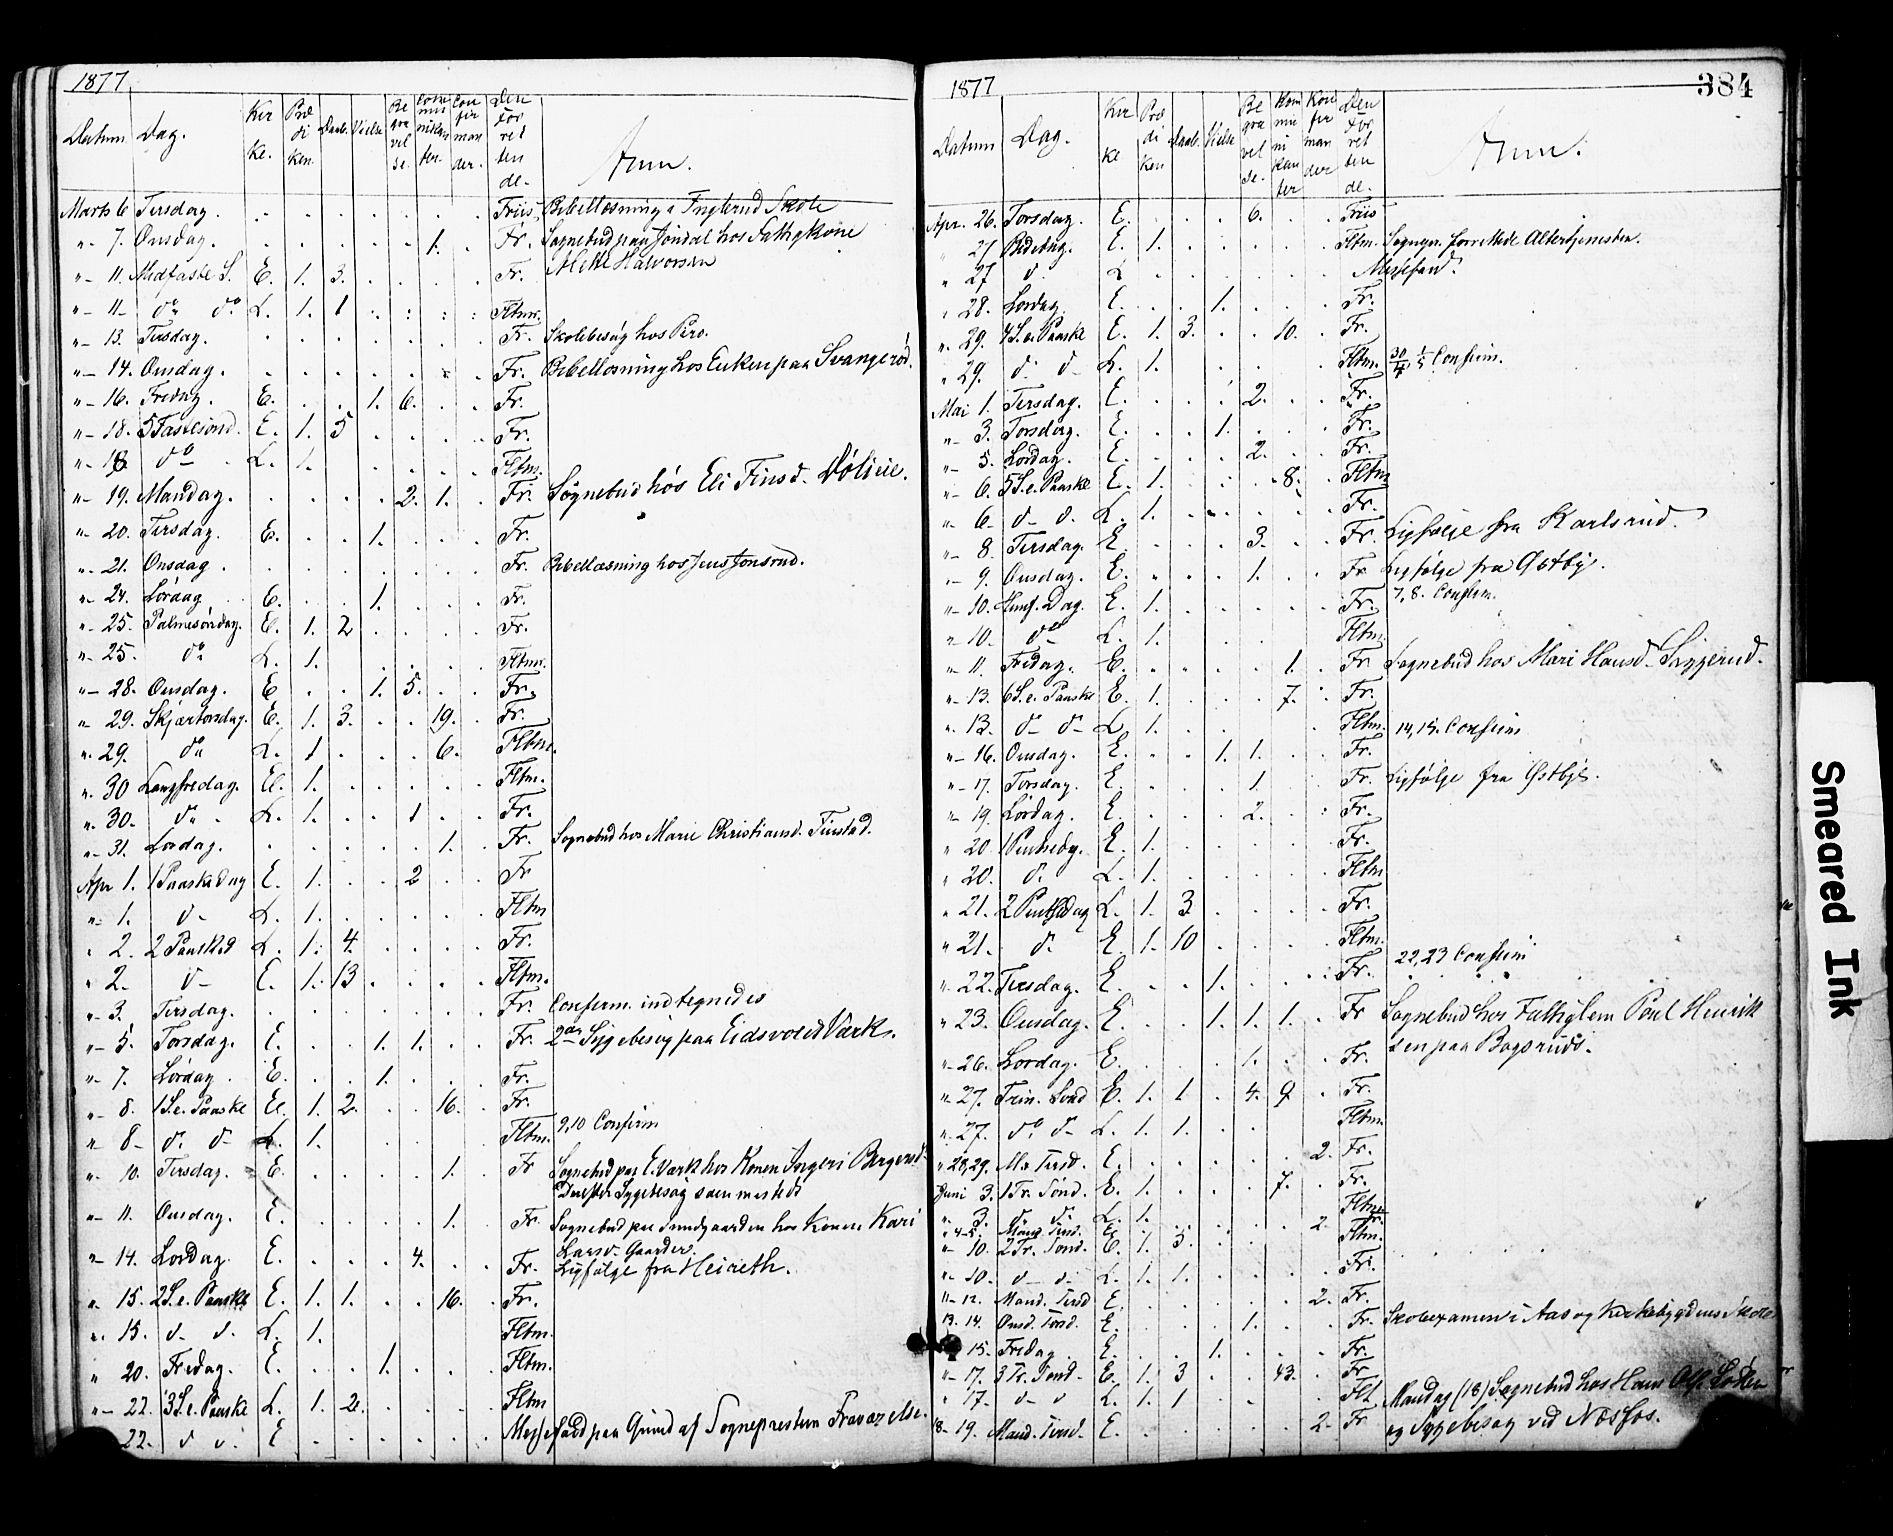 1877
Datum Dag. Kirke. Prædiken Daab. Vielse Begravelse. Communikanter. Confirmander. Den Forrettende. Anm.
Marts 6 Tirsdag. Friis Bibellæsning i Skole
"- 7. Onsdag. 1. Fr. Sognebud paa Jondal hos Fattigkone
Mette Halvorsen
"- 11. Midfaste S. E. 1. 3. Fr.
"- 11- do do L. 1. 1 Hltm.
"- 13. Tirsdag. Fr. Skolebesøg hos Pero.
"- 14. Onsdag. Fr. Bibellæsning hos Enken paa Svangerød.
"- 16. Fredag. E. 1. 6. Fr.
"- 18. 5 Fastesönd. E. 1. 5 Fr.
"- 18 do L. 1. Hltm.
"- 19. Mandag. 2. 1. Fr. Sognebud hos Eli Finsd. Dölieie.
"- 20. Tirsdag. E. 1. Fr.
"- 21. Onsdag. Fr. Bibellæsning hos Jens Jonsrud.
"- 24. Lördag E. 1. Fr.
"- 25. Palmesöndag. E. 1. 2 Fr.
"- 25. do L. 1. Hltm.
"- 28. Onsdag. E 1. 5. Fr.
"- 29. Skjærtorsdag. E. 1. 3. 19. Fr.
"- 29. do L. 1 6. Hltm.
"- 30 Langfredag. E. 1. Hltm.
"- 30. do L. 1. 1 Fr.
"- 31. Lördag. 1. Fr. Sognebud hos Marie Christiansd. Finstad.
Apr 1. 1 Paaskedag E. 1. 2 Fr
"- 1. d- L. 1. Hltm
" 2. 2 Paasked L. 1. 4. Fr.
" 2. d- E. 1. 13 Hltm.
"- 3. Tirsdag. Fr. Confirm. indtegnedes
"- 5. Torsdag. E. 1. 1. Fr. 2de Sygebesøg paa Eidsvold Værk.
"- 7. Lördag E. 1. Fr.
"- 8. 1 S. e. Paaske E. 1. 2. 16. Fr.
"- 8- d. d- L. 1. Hltm. 9, 10 Confirm
"- 10. Tirsdag. E. 1. Fr Sognebud paa E. Værk hos Konen Ingeri Bergersd.
Derefter Sygebesøg sammesteds
"- 11. Onsdag. E. 1. Fr. Sognebud paa Sundgaarden hos Konen Kari
Larsd- Gaarder.
"- 14. Lördag E. 4. Fr. Ligfølge fra Heieeth.
"- 15. 2 S. e. Paaske E. 1. 1. 16. Fr.
"- 15. d- d. L. 1. Hltm.
" 20. Fredag. E. 1. Hltm.
"- 22. 3 S. e. Paaske L. 1. 2. Hltm
22. d d. E Messefald paa Grund af Sognepræstens Fraværelse.
1877 384
Datum Dag. Kirke Prædiken Daab. Vielse Begravelse. Kommunikanter Konfirmander Den Forrettende. Anm.
Apr. 26. Torsdag. E. 6. Friis
" 27 Bededag. E. 1. Hltm. Sognepr. forrettede Altertjenesten.
" 27 d. L Messefald.
" 28. Lördag. E. 1. Fr.
" 29. 4 S. e. Paaske E. 1. 3. 10. Fr.
" 29. d. d- L. 1. Hltm. 30/4, 1/5 Confirm.
Mai 1. Tirsdag. E. 2. Fr.
"- 3. Torsdag. E. 1. Fr.
"- 5. Lördag. E. 2. Fr.
"- 6. 5 S. e. Paaske E. 1. 8. Hltm
"- 6- d- d. L. 1. Fr.
"- 8. Tirsdag. E. 3. Fr. Ligfølge fra Karlsrud.
"- 9. Onsdag. E. 1. Fr Ligfølge fra Østby.
"- 10. Himf. Dag. E. 1. Fr. 7, 8. Confirm.
"- 10. do L. 1. Hltm.
"- 11. Fredag. E. 1. Fr Sognebud hos Mari Hansd. Saggerud.
"- 13. 6 S. e. Paaske E. 1. 7. Fr.
"- 13. d- d- L 1. Hltm. 14, 15. Confirm
"- 16. Onsdag. E. 1. 1. Fr.
"- 17. Torsdag. E. 1. Fr Ligfølge fra Østby.
"- 19. Lördag. E. 2. Fr.
" 20 1 Pintsedg. E 1. Fr.
" 20. d. L. 1. Hltm
" 21. 2 Pintsedag L. 1. 3 Fr.
" 21. d. E. 1. 10 Hltm.
"- 22. Tirsdag. E. 1. Fr. 22, 23 Confirm
" 23. Onsdag. E. 1. 1. 1. Fr Sognebud hos Fattiglem Poul Henrik
sen paa Bogsrud.
"- 26. Lördag. E. 1. Fr.
"- 27. Trin. Sönd E. 1. 1 4. 9. Fr.
"- 27. do d- L. 1. 1. Hltm.
"- 28, 29. M. o Tirsd. E. 2. Fr.
Juni 3. 1 Tr. Sönd. E. 1. 7. Fr.
". 3. d. d. L. 1. Hltm
" 4-5. Mand. Tirsd. E. 2. Fr.
"- 10. 2 Tr. Sönd. E. 1. 3. Hltm.
"- 10. d- d- L. 1. 1. Fr.
11-12. Mand. Tirsd E. 2. Fr.
13. 14. Onsd. Torsd. E. 1. Fr. Skoleexamen i Aas og Kirkebygdens Skole
"- 15. Fredag. E. 1. Fr.
"- 17. 3 Tr. Sönd- E. 1. 3 43. Fr
"- 17. d- d L. 1. 1 Hlt. Mandag (18) Sognebud hos Hans Ols.
18- 19. Mand. Tirsd. E. 2. Fr og Sygebesøg ved Næsfos.
Smeared Ink